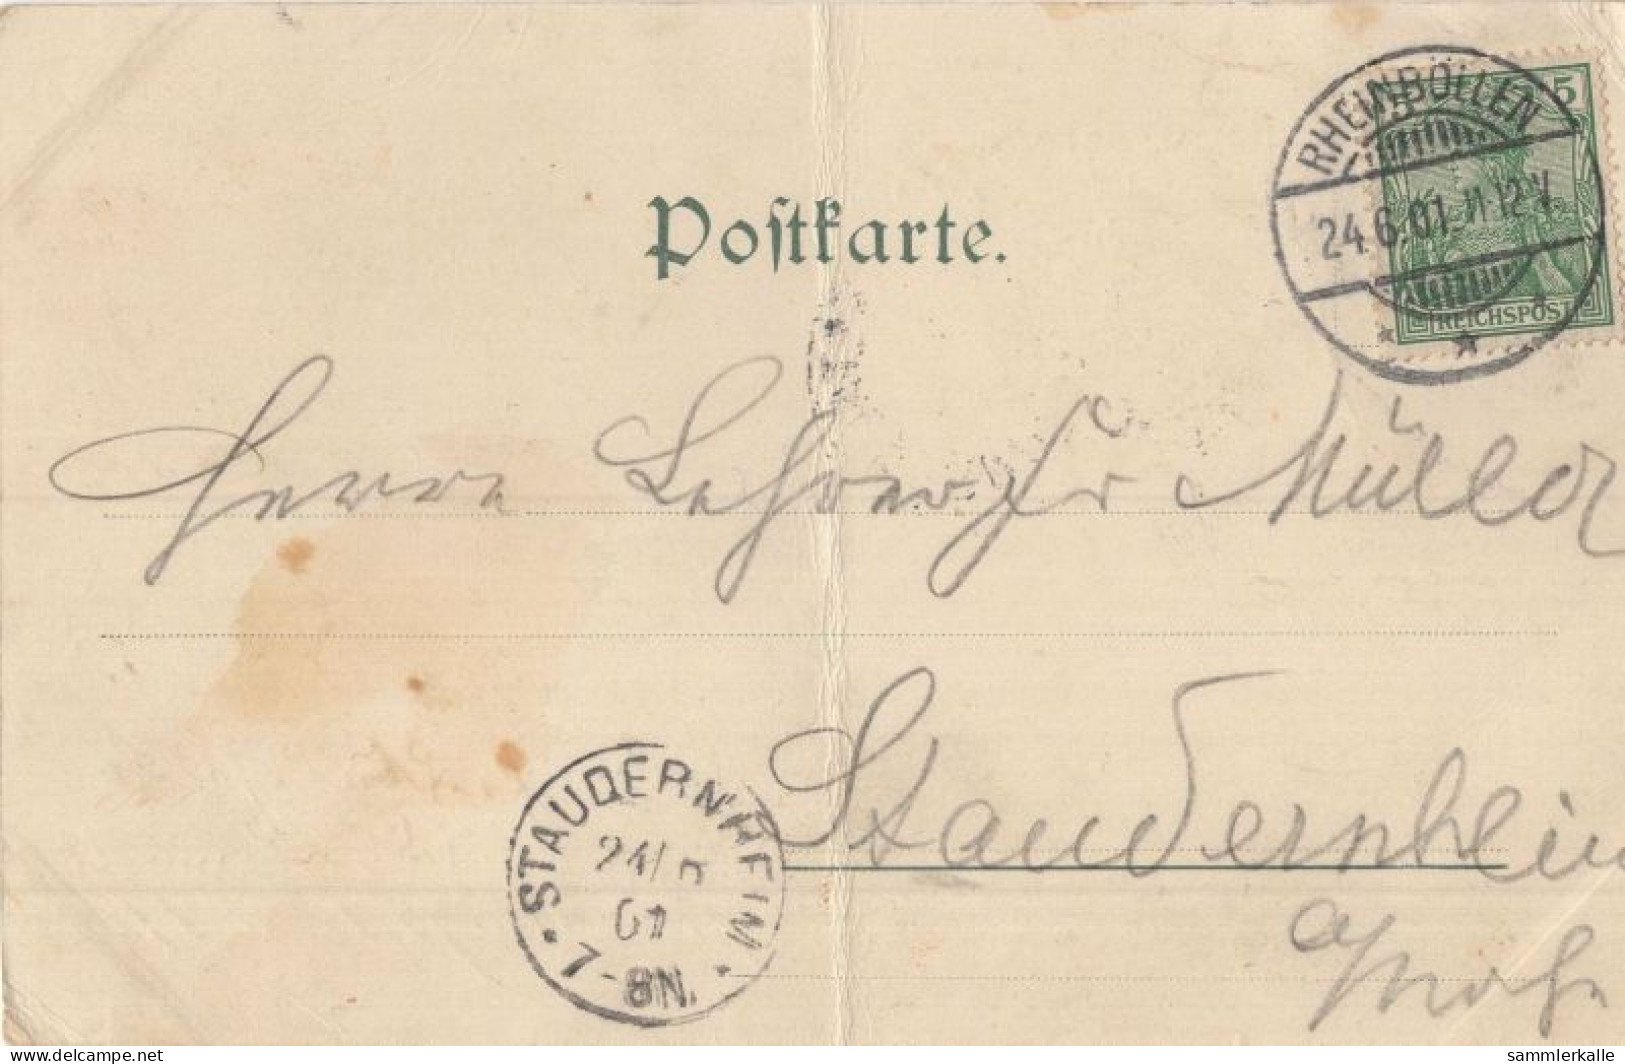 RHEINBÖLLEN
24.6.01.11-12V.
5
REICHSPOST
Postkarte.
Herrn Lehrer Fr Müller
Staudernheim
a/Nahe
STAUDERNHEIM
24/6
01
7-8N.
www.delcampe.net
sammlerkalle